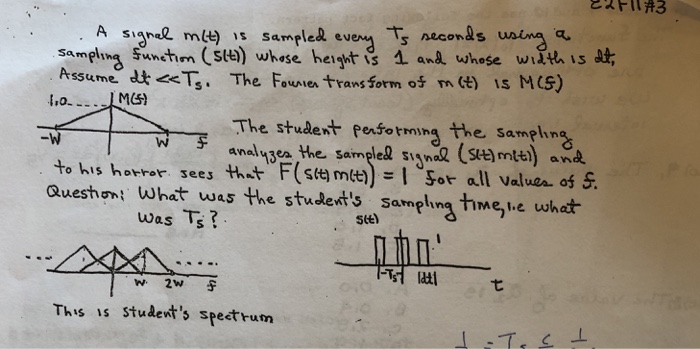 E2F11#3
A signal m(t) is sampled every Ts seconds using a
sampling function (s(t)) whose height is 1 and whose width is dt,
Assume dt <<Ts. The Fourier transform of m(t) is M(f)
1.0 M(f)
-W W f
The student performing the sampling
analyzes the sampled signal (s(t)m(t)) and
to his horror sees that F(s(t)m(t)) = 1 for all values of f.
Question: What was the student's sampling time, i.e what
was Ts?
s(t)
W 2W f
|-Ts-| |dt| t
This is student's spectrum